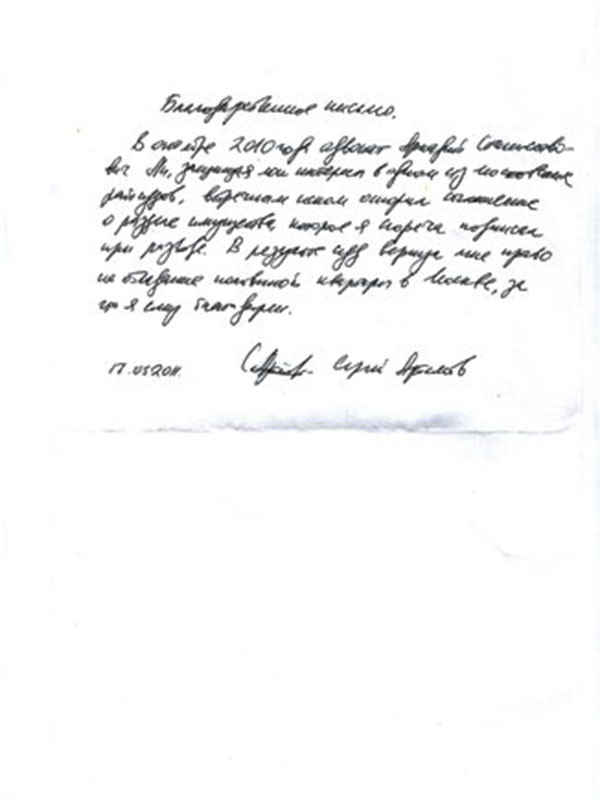 Благодарственное письмо.
В октябре 2010 года адвокат Аркадий Станиславо-
вич защищая мои интересы в одном из московских
райсудов, встречным иском оспорил соглашение
о разделе имущества, которое я подписал
при разводе. В результате суд вернул мне право
на обладание половиной квартиры в Москве, за
что я ему благодарен.
17.05.2011. Сергей